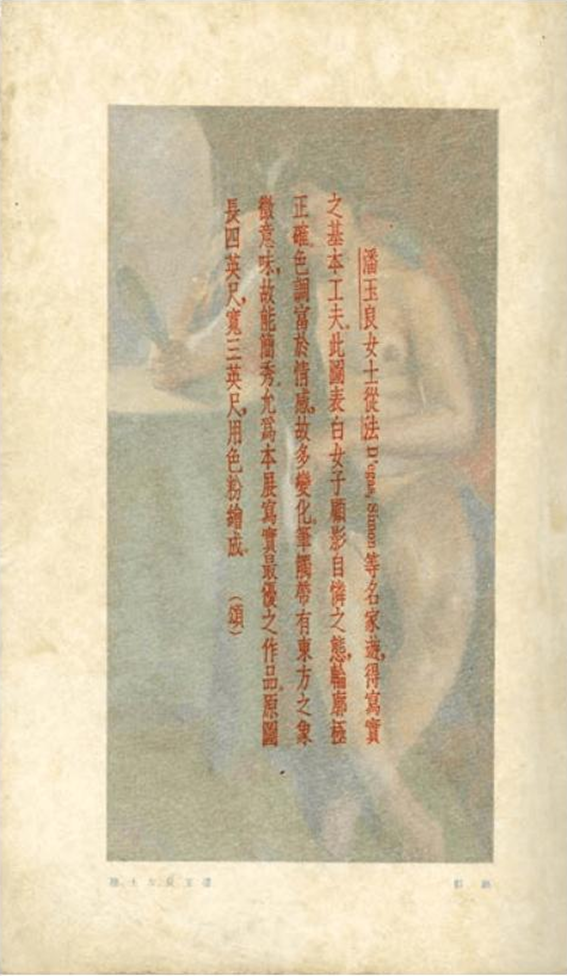 潘玉良女士從法 Simon等名家遊,得寫實
之基本工夫。此圖表白女子顧影自憐之態,輪廓極
正確。色調富於情感,故多變化。筆觸帶有東方之象
徵意味,故能簡秀,允爲本展寫實最優之作品。原圖
長四英尺,寬三英尺,用色粉繪成。 (頌)
潘玉良女士